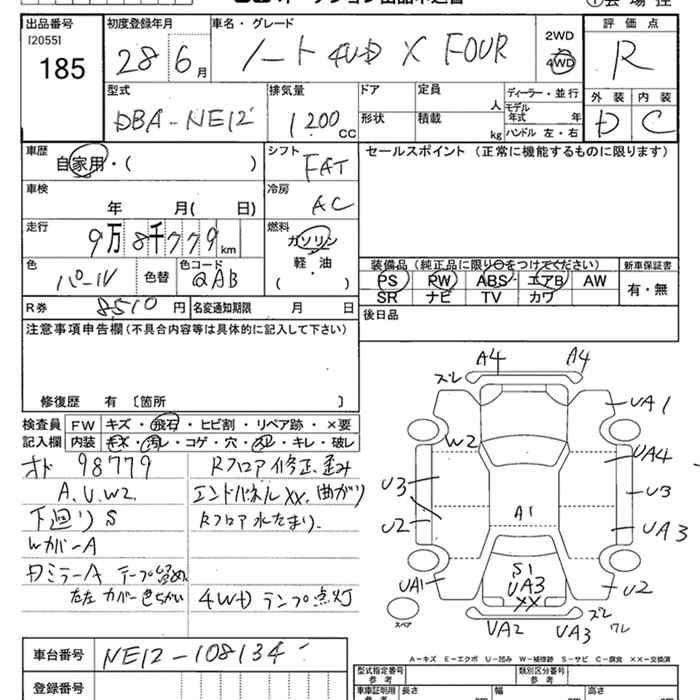 出品番号 [2055] 185
初度登録年月 28年6月
車名・グレード ノート 4WD X FOUR
2WD
4WD
評価点 R
型式 DBA-NE12
排気量 1200 CC
ドア
形状
定員 人
積載 kg
ディーラー・並行
モデル年式 年
ハンドル 左・右
外装 D
内装 C
車歴 自家用・( )
シフト FAT
セールスポイント (正常に機能するものに限ります)
車検 年 月( 日)
冷房 AC
走行 9万8千779km
燃料 ガソリン
軽・油
( )
色 パール
色替
色コード QAB
装備品 (純正品に限り○をつけてください)
新車保証書
PS PW ABS エアB AW
有・無
SR ナビ TV カワ
R券 8510円
名変通知期限 月 日
後日品
注意事項申告欄(不具合内容等は具体的に記入して下さい)
修復歴 有 〔箇所 〕
検査員記入欄
FW キズ・飛石・ヒビ割・リペア跡・×要
内装 キズ・汚レ・コゲ・穴・スレ・キレ・破レ
オド 98779
A.U.W2.
下廻りS
Wカバー A
Rフロア修正、歪み
エンドパネルXX、曲がり
Rフロア水たまり.
4WDランプ点灯
A4 A4
ズレ
UA1
W2
UA4
U3
U3
U2
A1
UA3
UA1
S1
UA3
XX
U2
ズレ
ワレ
UA2 UA3
スペア
A-キズ E-エクボ U-凹み W-補修跡 S-サビ C-腐食 XX-交換済
車台番号 NE12-108134
登録番号
型式指定番号
参考
類別区分番号
参考
車庫証明用
参考
長さ cm
幅 cm
高さ cm